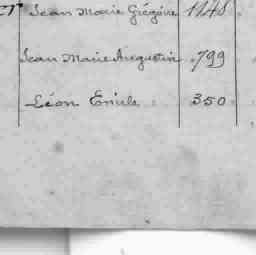 Jean Marie Grégoire 1148
Jean Marie Augustin 799
Léon Emile 350